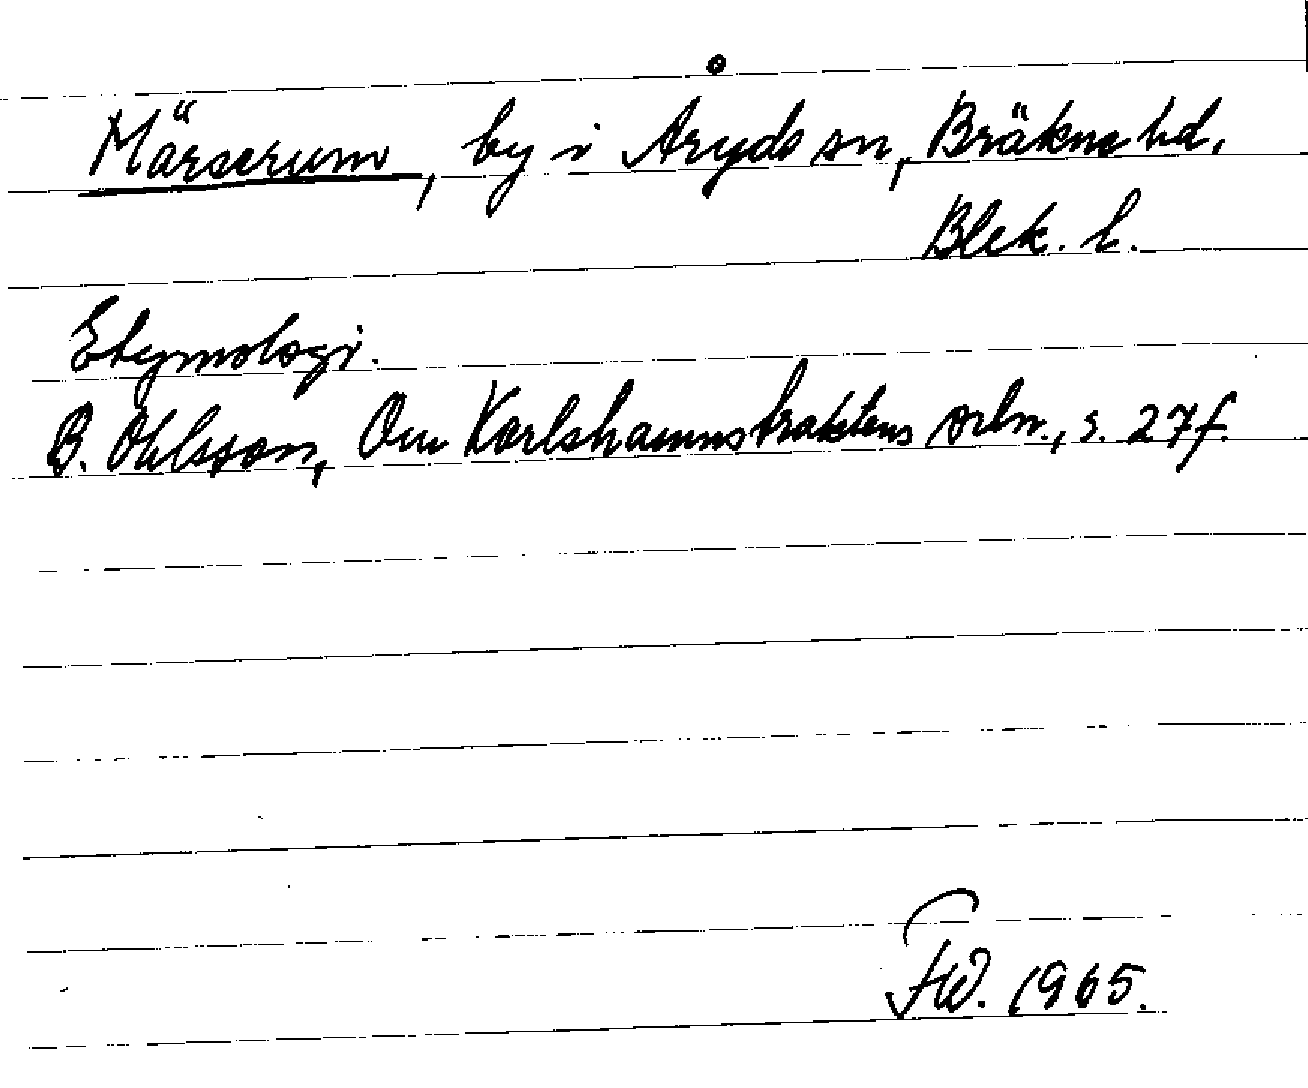 Märserum, by i Åryds sn, Bräkne hd.
Blek. l.
Etymologi.
B. Ohlsson, Om Karlshamnstraktens ortn., s. 27f.
FW. 1965.